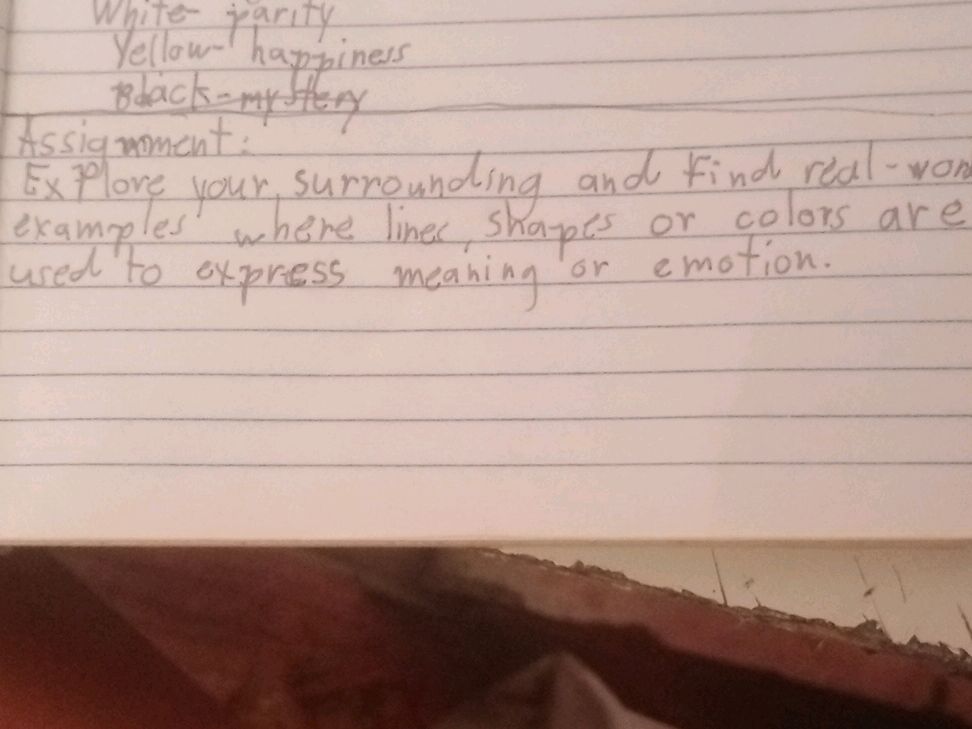 White- parity
Yellow- happiness
Black-mystery
Assignment:
Explore your surrounding and find real-wor
examples where lines, shapes or colors are
used to express meaning or emotion.